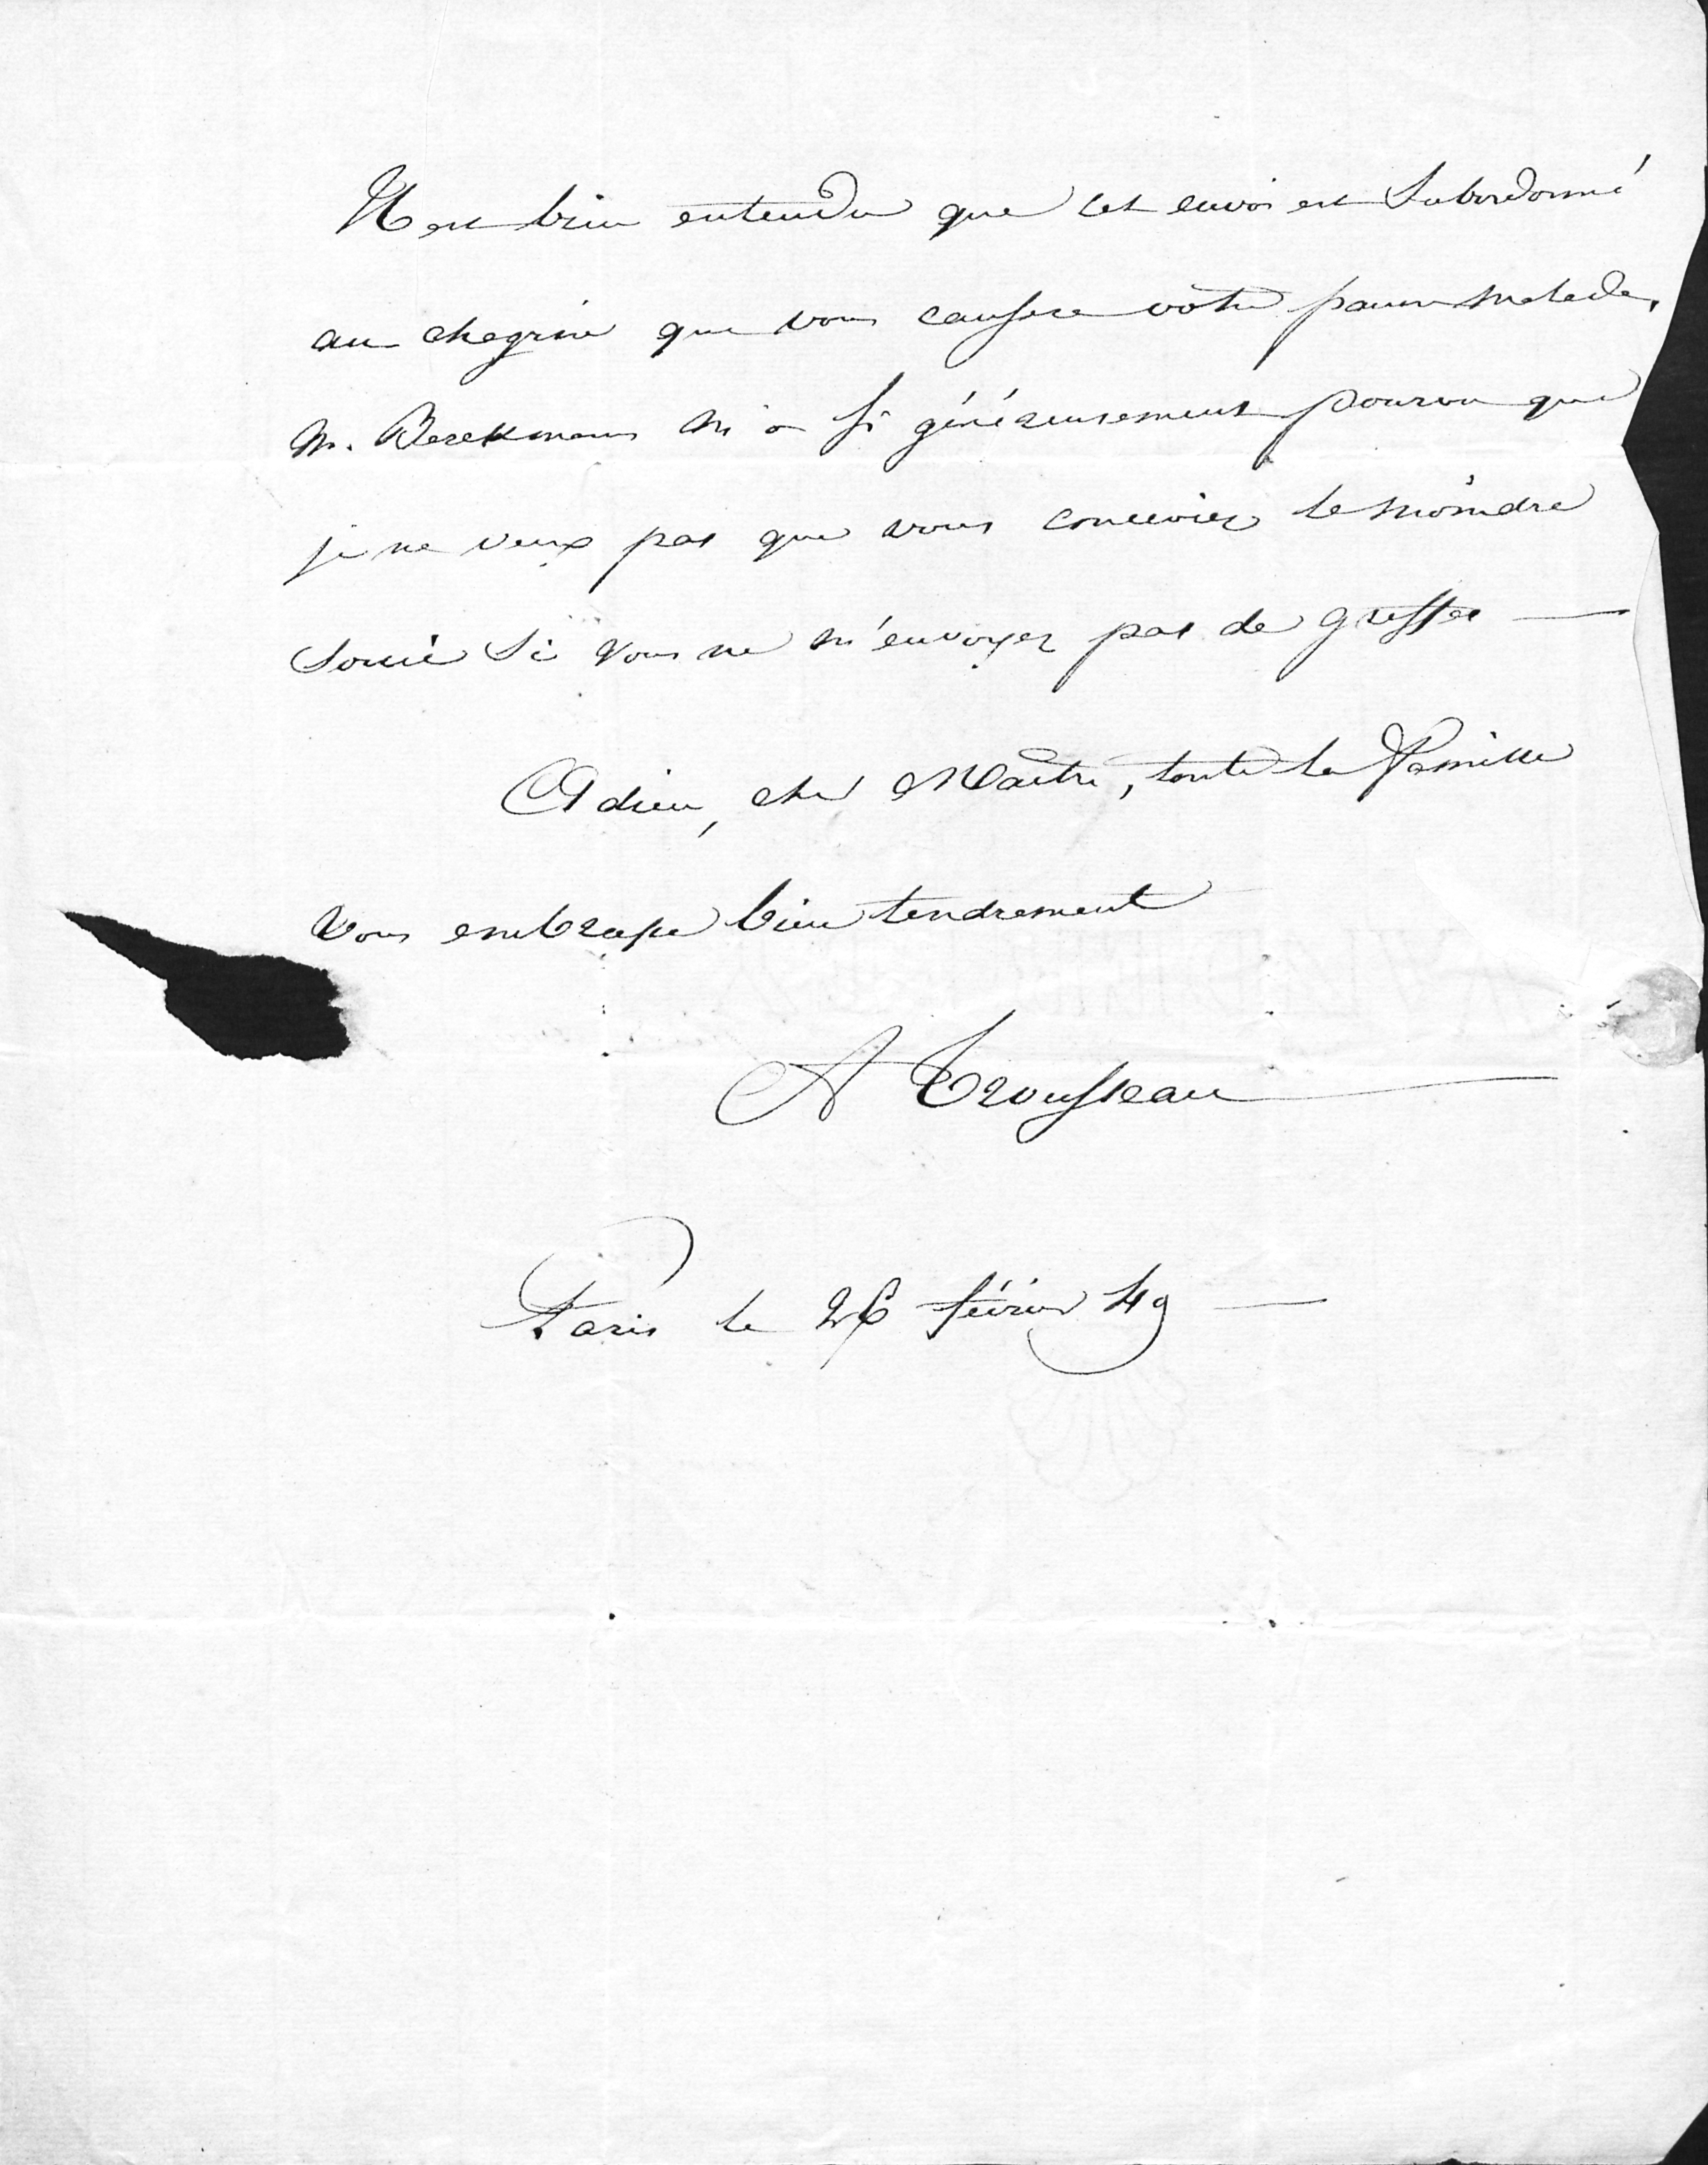 Il est bien entendu que cet envoi est subordonné
au chagrin que vous causera votre pauvre malade,
M. Berckmans m'a si généreusement pourvu que
je ne veux pas que vous conceviez le moindre
souci si vous ne m'envoyez pas de greffes —
Adieu, cher Maître, toute la famille
vous embrasse bien tendrement
A Trousseau
Paris le 26 février 49 —